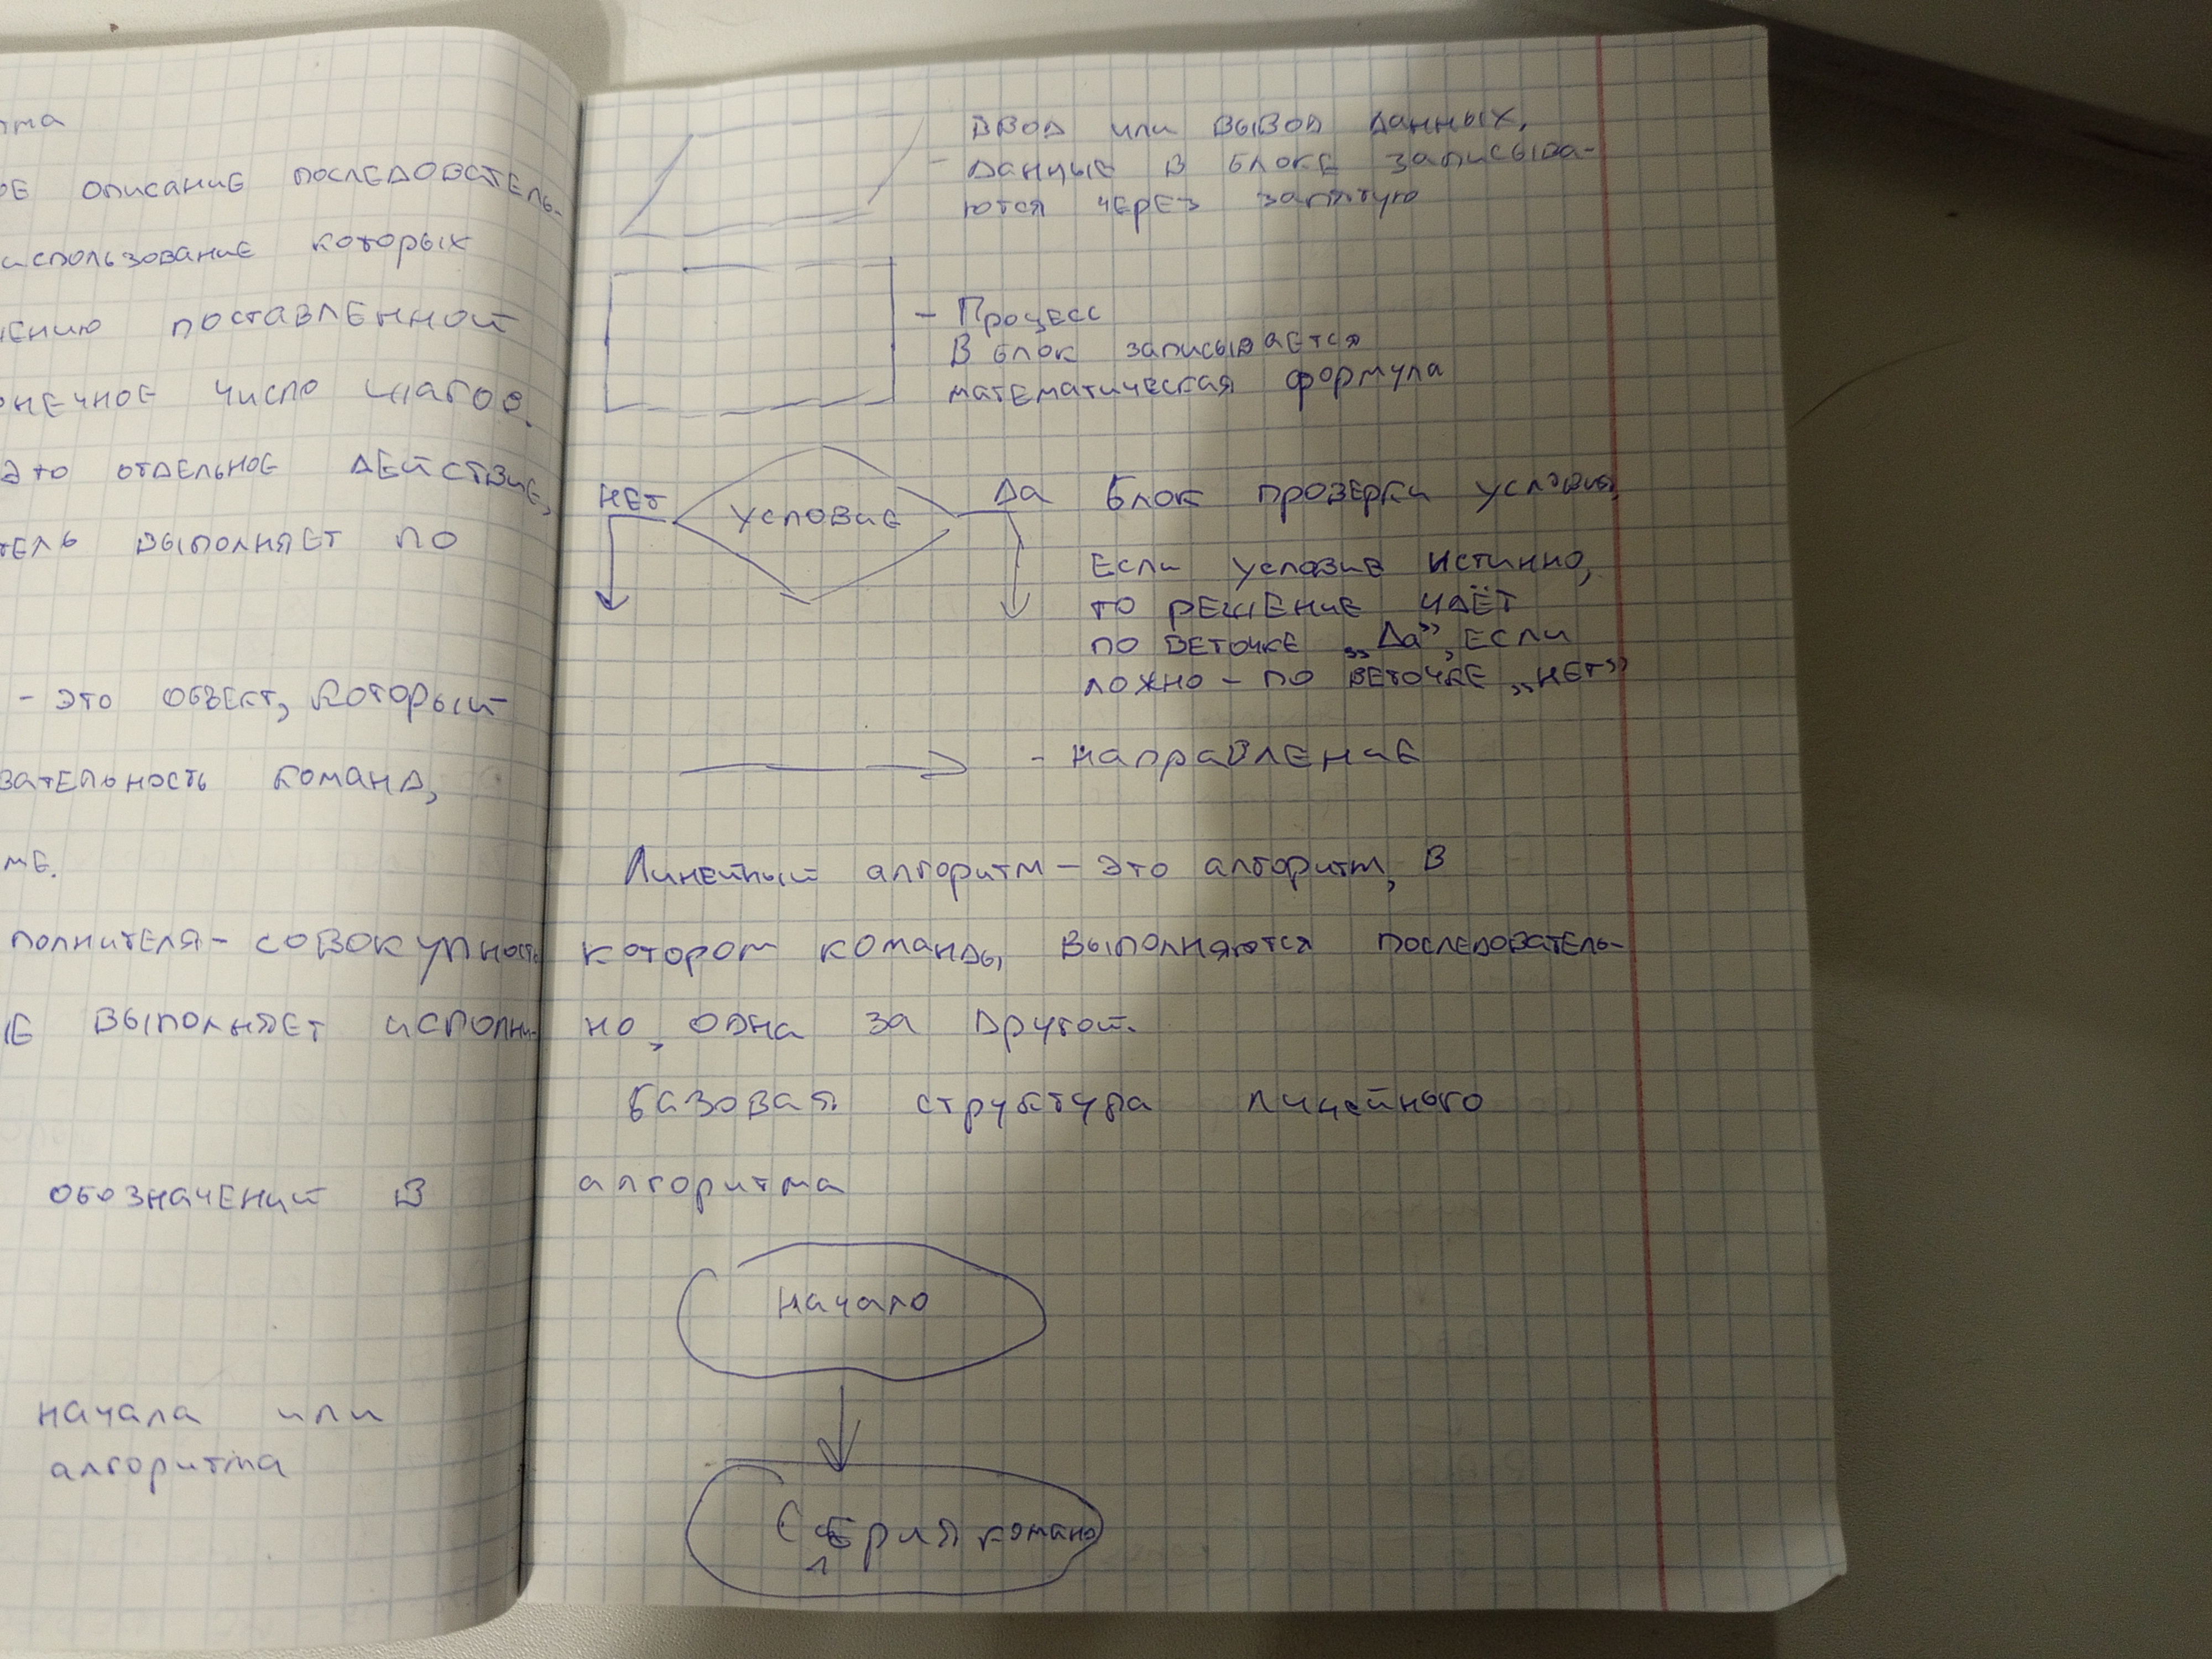 ОЕ ОПИСАНИЕ ПОСЛЕДОВАТЕЛЬ-
ИСПОЛЬЗОВАНИЕ КОТОРЫХ
ЧЕНИЮ ПОСТАВЛЕННОЙ
ОНЕЧНОЕ ЧИСЛО ШАГОВ.
ЭТО ОТДЕЛЬНОЕ ДЕЙСТВИЕ,
ТЕЛЬ ВЫПОЛНЯЕТ ПО
- ЭТО ОБЪЕКТ, КОТОРЫЙ
ВАТЕЛЬНОСТЬ КОМАНД,
МЕ.
ПОЛНИТЕЛЯ - СОВОКУПНОСТЬ
ЫЕ ВЫПОЛНЯЕТ ИСПОЛНИ-
ОБОЗНАЧЕНИЙ В
НАЧАЛА ИЛИ
АЛГОРИТМА
ВВОД ИЛИ ВЫВОД ДАННЫХ,
- ДАННЫЕ В БЛОКЕ ЗАПИСЫВА-
ЮТСЯ ЧЕРЕЗ ЗАПЯТУЮ
- Процесс
В БЛОК ЗАПИСЫВАЕТСЯ
МАТЕМАТИЧЕСКАЯ ФОРМУЛА
НЕТ УСЛОВИЕ Да БЛОК ПРОВЕРКИ УСЛОВИЯ
ЕСЛИ УСЛОВИЕ ИСТИННО,
ТО РЕШЕНИЕ ИДЁТ
ПО ВЕТОЧКЕ „Да”, ЕСЛИ
ЛОЖНО - ПО ВЕТОЧКЕ „НЕТ”
- НАПРАВЛЕНИЕ
Линейный алгоритм - это алгоритм, В
КОТОРОМ КОМАНДЫ, ВЫПОЛНЯЮТСЯ ПОСЛЕДОВАТЕЛЬ-
НО, ОДНА ЗА ДРУГОЙ.
БАЗОВАЯ СТРУКТУРА ЛИНЕЙНОГО
АЛГОРИТМА
НАЧАЛО
СЕРИЯ КОМАНД